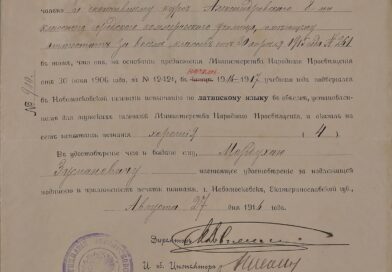 скончавшему курсъ Александровскаго 8-ми
класснаго городского коммерческаго училища, имѣющему
аттестатъ за восемь классовъ отъ апрѣля 1915 года № 261
въ томъ, что онъ, на основаніи предложенія Министерства Народнаго Просвѣщенія
отъ 30 іюня 1906 года, за № 12424, въ началѣ 1916-1917 учебнаго года подвергался
въ Новомосковской гимназіи испытанію по латинскому языку въ объемѣ, установлен-
номъ для гимназій Министерства Народнаго Просвѣщенія, и оказалъ на
семъ испытаніи познанія хорошія (4)
Въ удостовѣреніе чего и выдано ему, Мордухаю
настоящее удостовѣреніе за надлежащей
подписью и приложеніемъ печати гимназіи. г. Новомосковскъ, Екатеринославской губ.,
Августа 27 дня 1916 г.
Директоръ
И. об. Инспектора
№ 910.